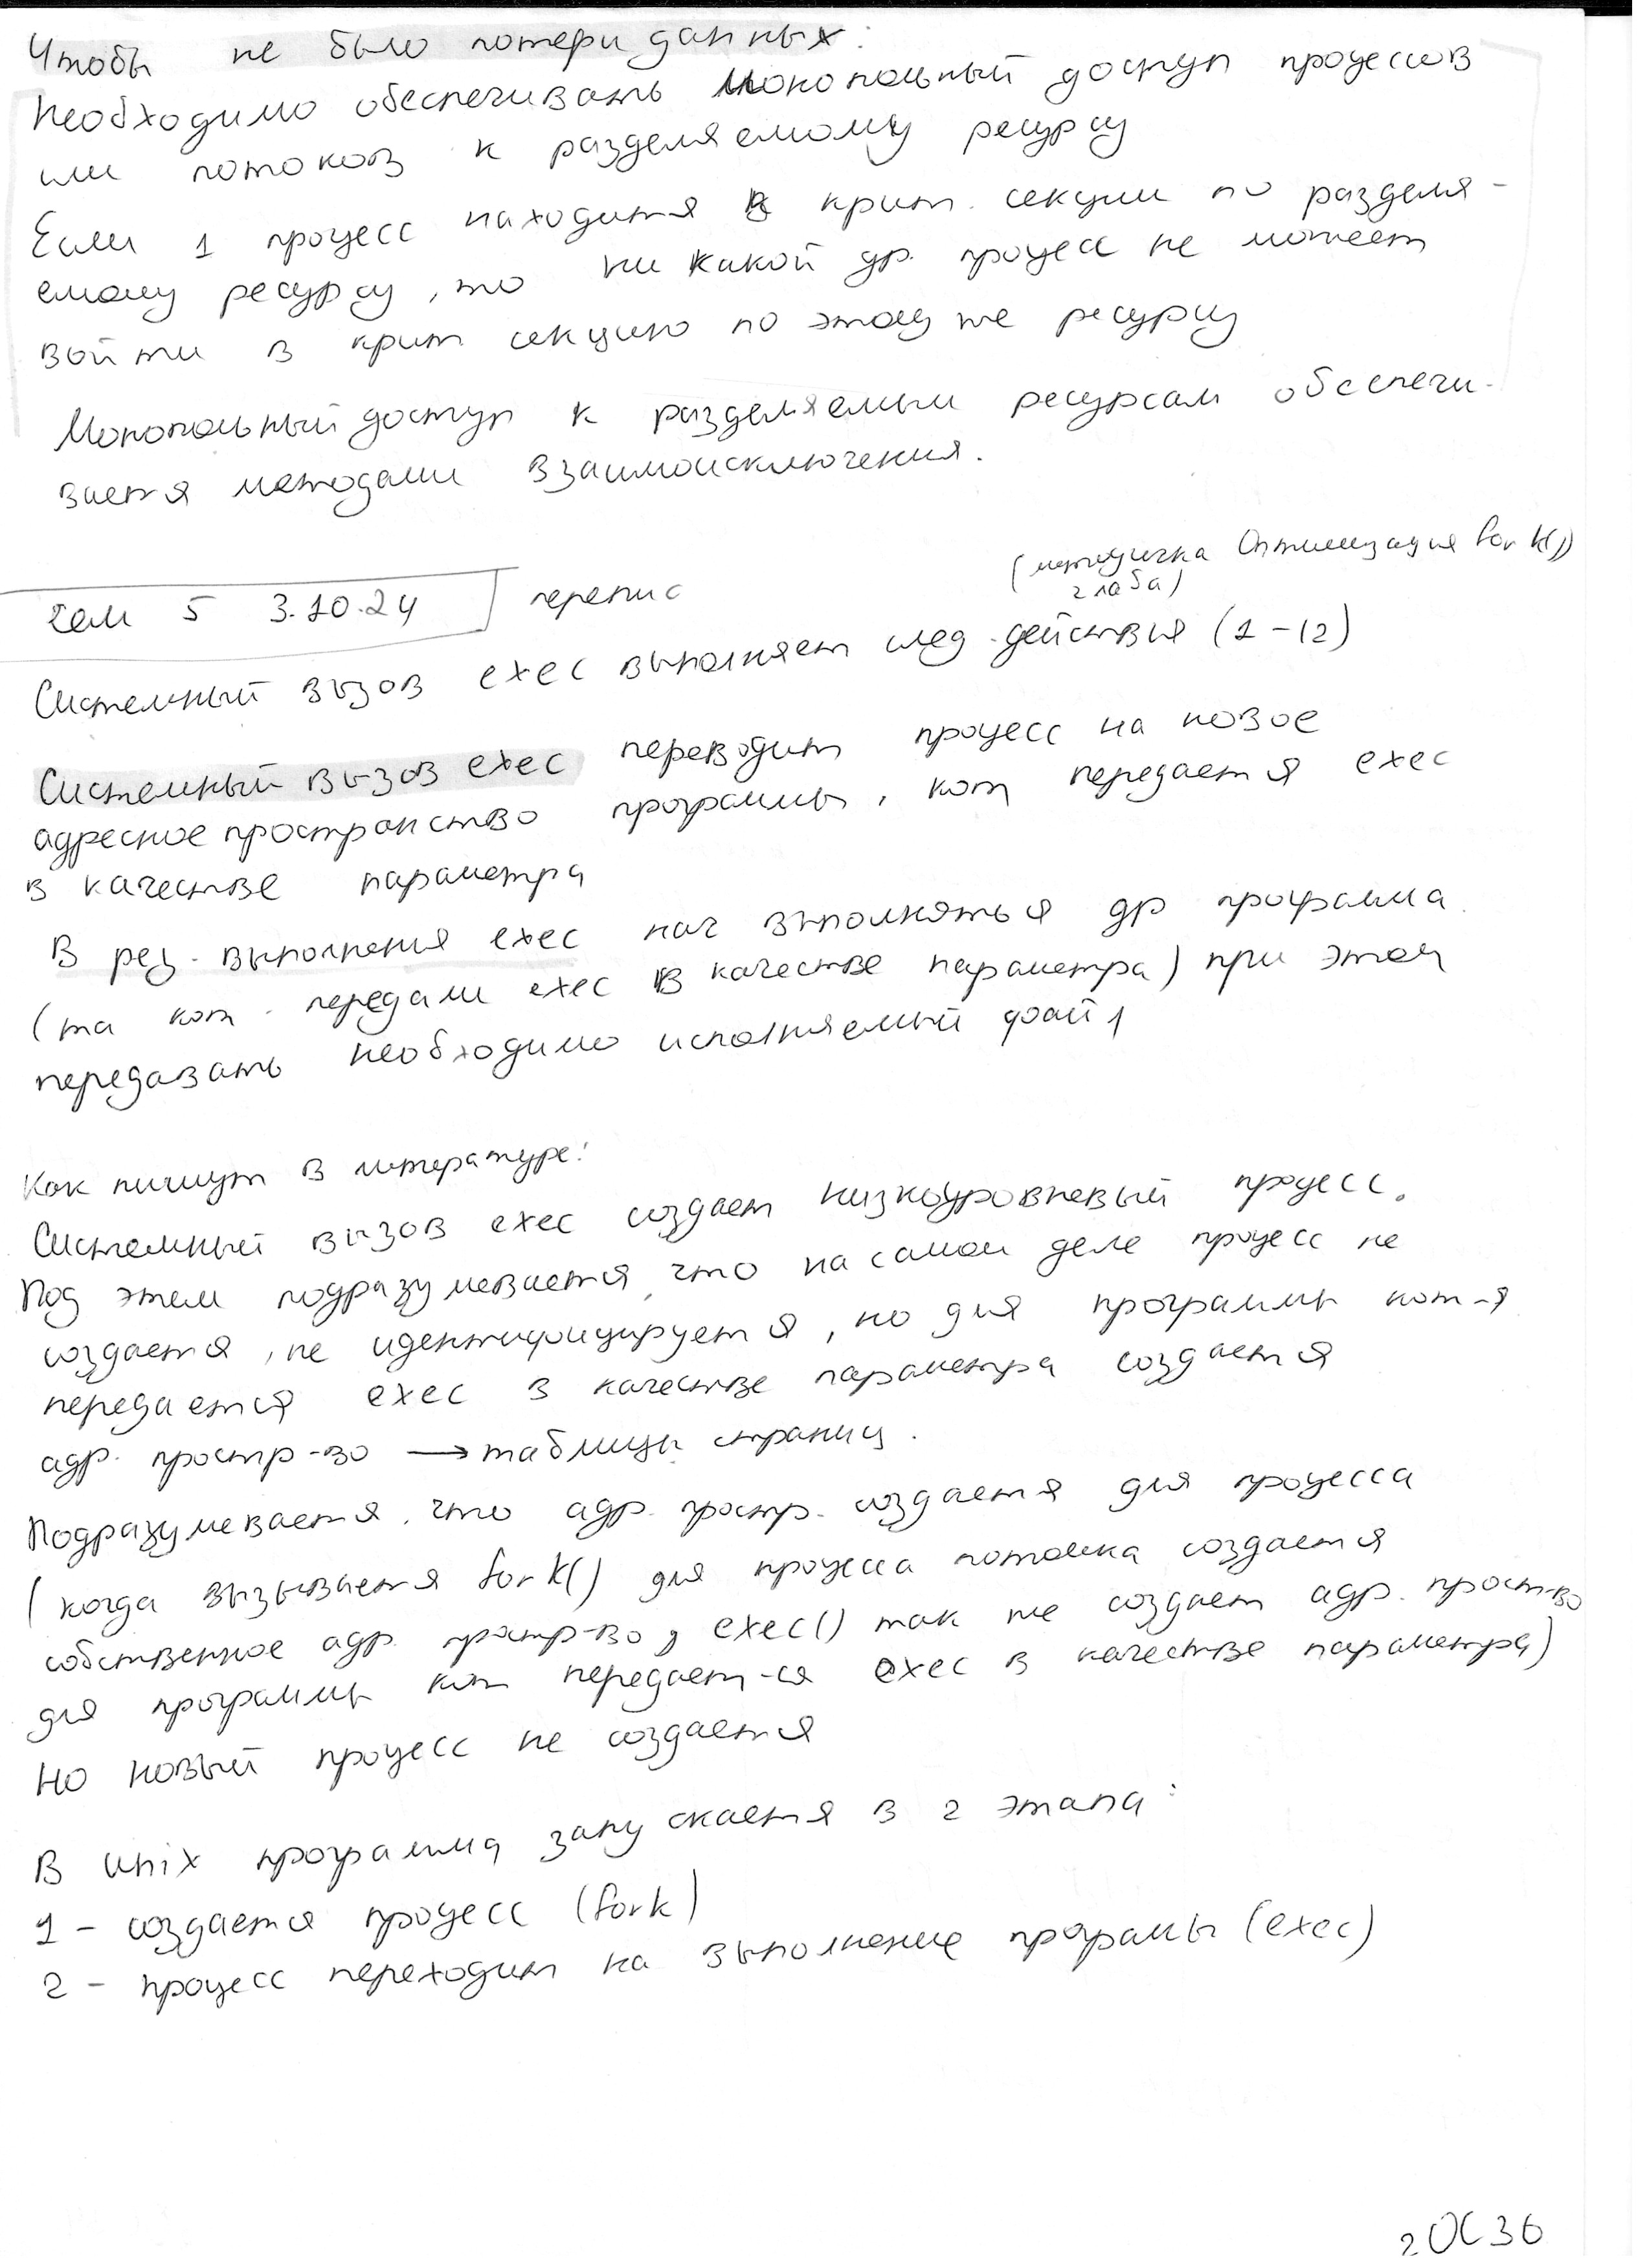 Чтобы не было потери данных:
Необходимо обеспечивать монопольный доступ процессов
или потоков к разделяемому ресурсу
Если 1 процесс находится в крит. секции по разделя-
емому ресурсу, то ни какой др. процесс не может
войти в крит секцию по этому же ресурсу
Монопольный доступ к разделяемым ресурсам обеспечи-
вается методами взаимоисключения.
(методичка Оптимизация fork())
2 лаба)
Сем 5 3.10.24 перепис
Системный вызов exec выполняет след. действия (1-12)
Системный вызов exec переводит процесс на новое
адресное пространство программы, кот передается exec
в качестве параметра
В рез. выполнения exec нач выполняться др программа
(та кот. передали exec в качестве параметра) при этом
передавать необходимо исполняемый файл
Как пишут в литературе:
Системный вызов exec создает низкоуровневый процесс.
Под этим подразумевается, что на самом деле процесс не
создается, не идентифицируется, но для программы кот-я
передается exec в качестве параметра создается
адр. простр-во → таблицы страниц.
Подразумевается, что адр. простр. создается для процесса
(когда вызывается fork() для процесса потомка создается
собственное адр. простр-во, exec() так же создает адр. прост-во
для программы кот передает-ся exec в качестве параметра)
Но новый процесс не создается
В Unix программа запускается в 2 этапа:
1 - создается процесс (fork)
2 - процесс переходит на выполнение програмы (exec)
2 ОС 36